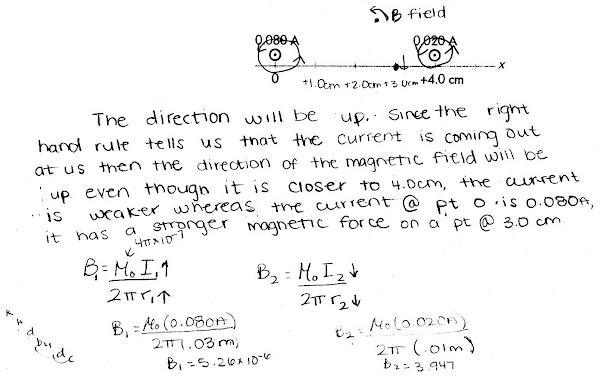 B field
0.080 A 0.020 A
x
0 +1.0cm +2.0cm +3.0cm +4.0 cm
The direction will be up. Since the right
hand rule tells us that the current is coming out
at us then the direction of the magnetic field will be
up even though it is closer to 4.0cm, the current
is weaker whereas the current @ pt 0 is 0.080A,
it has a stronger magnetic force on a pt @ 3.0 cm.
4π×10⁻⁷
B₁ = M₀ I₁↑ / 2π r₁↑ B₂ = M₀ I₂↓ / 2π r₂↓
B₁ = M₀(0.080A) / 2π(.03m) B₂ = M₀(0.020A) / 2π (.01m)
B₁ = 5.26×10⁻⁶ B₂ = 3.947